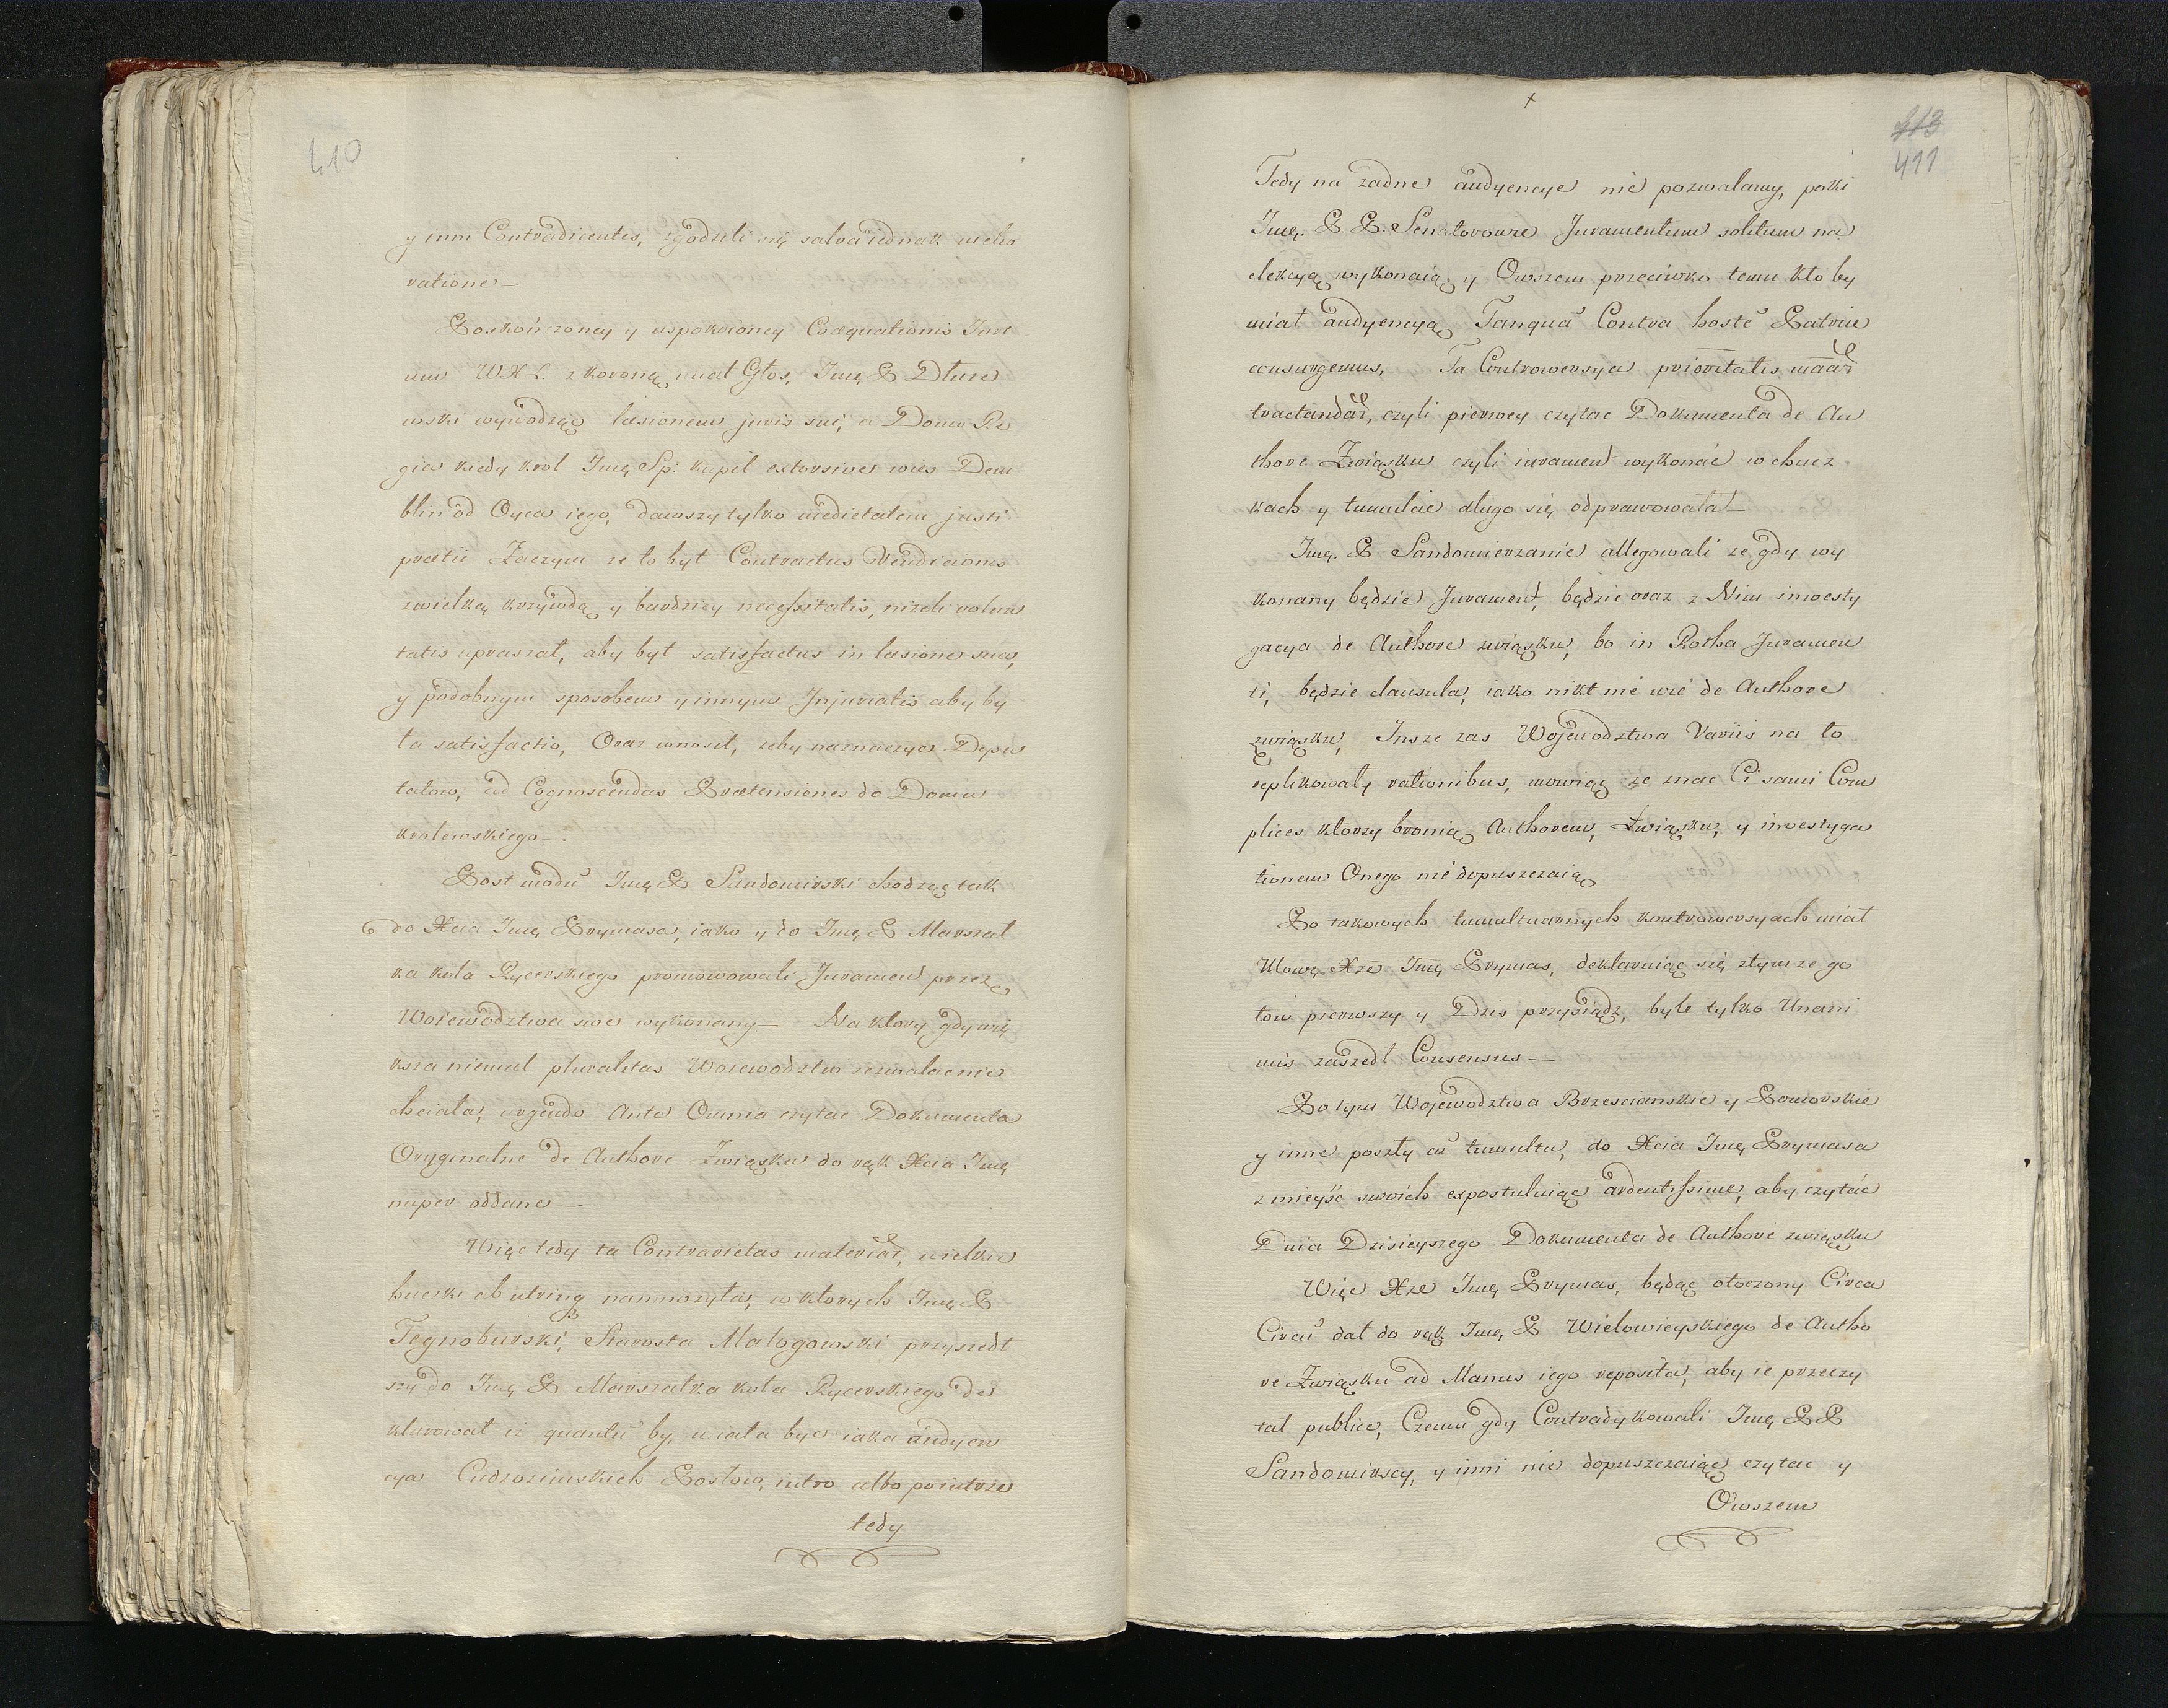 410
y inni Contradicentes, zgodzili się salva iednak melio
ratione —
Poskończoney y uspokoioney Coæquationis Juri
um WXL. z koroną miał Głos, Jmę P Dłuże
wski wywodząc læsionem juris sui, a Domo Re
gia kiedy krol Jmę Sp: kupił extorsive wies Dem
blin od Oyca iego, dawszy tylko medietatem justi
prætii Zaczym ze to był Contractus Vendicionis
zwielką krzywdą y bardziey necessitatis, niżeli volun
tatis upraszał, aby był satisfactus in læsione sua,
y podobnym sposobem y innym Injuriatis aby by
ła satisfactio, Oraz wnosił, żeby naznaczyc Depu
tatow, ad Cognoscendas Prætensiones do Domu
krolewskiego —
Post modũ Jmę P Sandomirski chodząc tak
do Xcia Jmę Prymasa, iako y do Jmę P Marszał
ka koła Rycerskiego promowowali Jurament przez
Woiewodztwa swe wykonany — Na ktory gdy wię
ksza niemal pluralitas Woiewodztw zezwalac nie
chciała, urgendo Ante Omnia czytac Dokumenta
Oryginalne de Authore Związku do rąk Xcia Jmę
nuper oddane —
Więc tedy ta Contrarietas materiar, wielkie
huczki ab utrinq namnożyła, w ktorych Jmę P
Tegnoburski, Starosta Małogowski przyszedł
szy do Jmę P Marszałka koła Rycerskiego de
klarował iż quantũ by, miała byc iaka audyen
cya Cudzoziemskich Posłow, iutro albo poiutrze
tedy
413
411
Tedy na żadne audyencye nie pozwalamy, poki
Jmę. P. P. Senatorowie Juramentum solitum na
elekcyą wykonaią, y Owszem przeciwko temu kto by
miał audyencyą Tanquã Contra hostẽ Patriæ
consurgemus, Ta Controwersya prioritatis māār
tractandar, czyli pierwey czytac Dokumenta de Au
thore Związku czyli iurament wykonać w chucz
kach y tumulcie długo się odprawowała —
Jmę. P Sandomierzanie allegowali ze gdy wy
konany będzie Jurament, będzie oraz z Nim inwesty
gacya de Authore związku, bo in Rotha Juramen
ti, będzie clausula, iako nikt nie wie de Authore
związku, Insze zas Wojewodztwa Variis na to
replikowały rationibus, mowiąc że znac Ci sami Com
plices ktorzy bronią Authorem, Związku, y investyga
tionem Onego nie dopuszczaią
Po takowych tumultuarnych kontrowersyach miał
Mowę Xże Jmę Prymas, deklaruiąc się ztym ze go
tow pierwszy y Dzis przysiądz, byle tylko Unani
mis zaszedł Consensus —
Po tym Wojewodztwa Brzescianskie y Pomorskie
y inne poszły cũ tumultu, do Xcia Jmę Prymasa
z mieysc swoich expostuluiąc ardentissime, aby czytać
Dnia Dzisieyszego Dokumenta de Authore związku
Więc Xze Jmę Prymas, będąc otoczony Circa
Circũ dał do rąk Jmę P Wielowieyskiego de Autho
re Związku ad Manus iego reposita, aby ie przeczy
tał publice, Czemu gdy Contradykowali Jmę P P
Sandomirscy, y inni nie dopuszczaiąc czytac y
Owszem